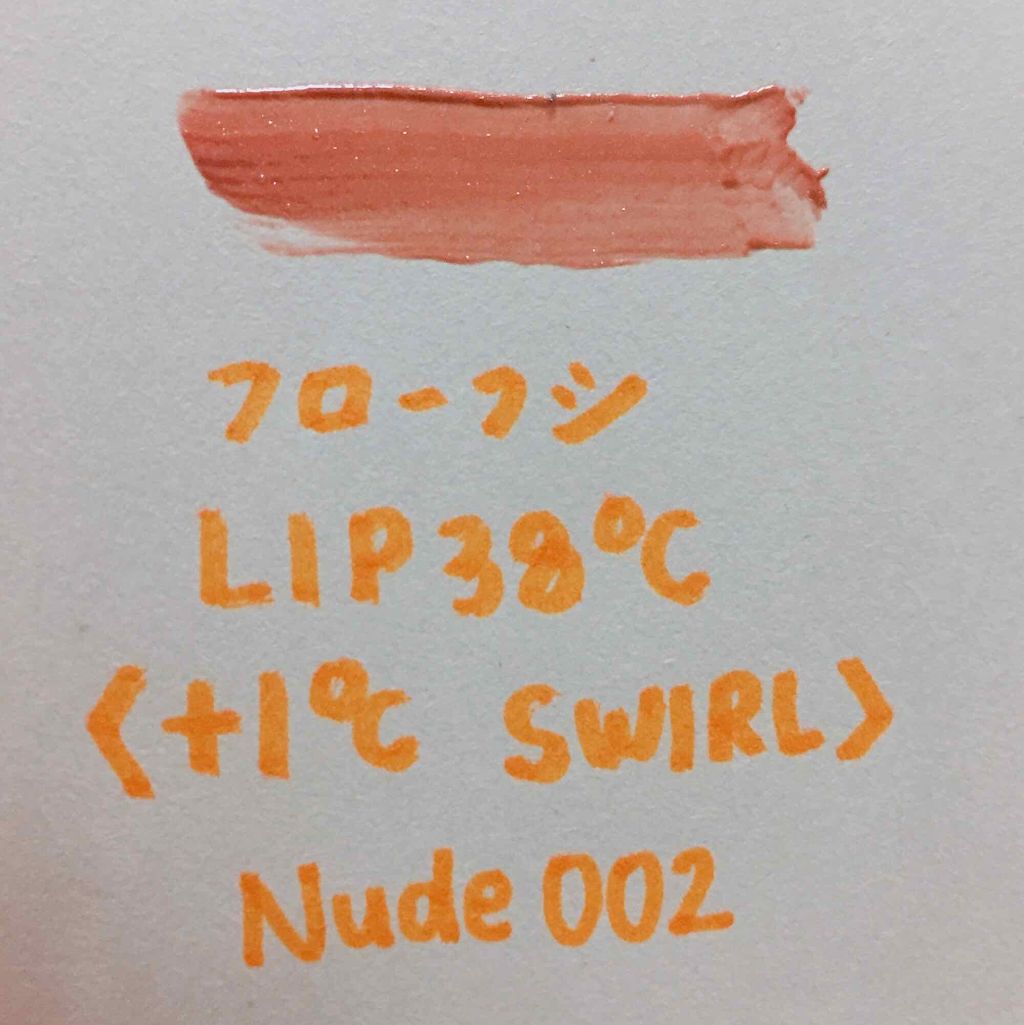 フローフシ
LIP38℃
〈+1℃ SWIRL〉
Nude 002